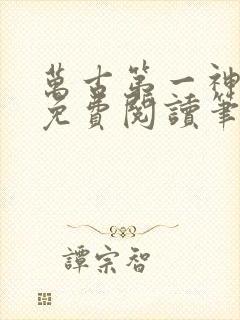 萬古第一神
免費閱讀筆
譚宗智